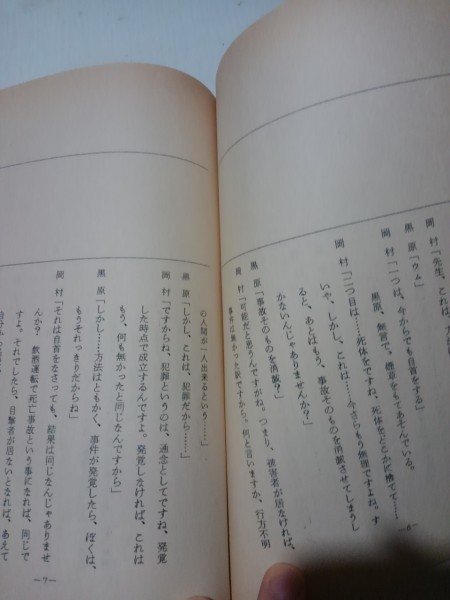 岡村「先生、これは、
黒原「ウム」
岡村「一つは、今からでも自首をする」
黒原、無言で、煙草をもてあそんでいる。
岡村「二つ目は……死体をですね、死体をどこかに捨てて……
いや、しかし、これは……今さらもう無理ですよね。す
ると、あとはもう、事故そのものを消滅させてしまうし
かないんじゃありませんか?」
黒原「事故そのものを消滅?」
岡村「可能だと思うんですがね。つまり、被害者が居なければ、
事件は無かった訳ですから。何と言いますか、行方不明
—6—
の人間が一人出来るという……」
黒原「しかし、これは、犯罪だから……」
岡村「ですからね、犯罪というのは、通念としてですね、発覚
した時点で成立するんですよ。発覚しなければ、これは
もう、何も無かったと同じなんですから」
黒原「しかし……方法はともかく、事件が発覚したら、ぼくは、
もうそれっきりだからね」
岡村「それは自首をなさっても、結果は同じなんじゃありませ
んか? 飲酒運転で死亡事故という事になれば、同じで
すよ。それでしたら、目撃者が居ないとなれば、あえて
—7—